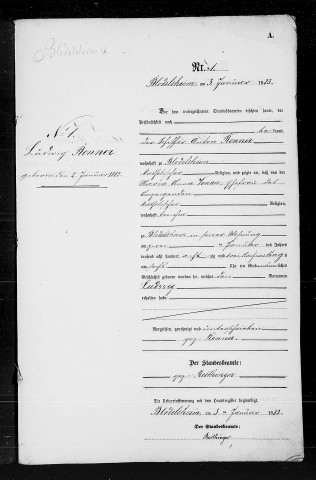 A.
Blodelsheim
Nr. 1.
Blodelsheim, am 3. Januar 1883.
Vor dem unterzeichneten Standesbeamten erschien heute, der
Persönlichkeit nach
be kannt,
der Schiffer Renner
No 1.
Ludwig Renner
geboren den 2. Januar 1883.
wohnhaft zu Blodelsheim
katholischer Religion, und zeigte an, daß von der
Maria Anna Ehefrau des
katholischer Religion,
wohnhaft bei ihm
zu Blodelsheim in seiner Wohnung
am zwei ten Januar des Jahres
tausend acht hundert achtzig und drei Nachmittags
um Uhr ein Kind männlichen
Geschlechts geboren worden sei, welches den Vornamen
Ludwig
erhalten habe
Vorgelesen, genehmigt und unterschrieben
gez. Renner
Der Standesbeamte:
gez.
Die Uebereinstimmung mit dem Hauptregister beglaubigt.
Blodelsheim, am 3. Januar 1883.
Der Standesbeamte: